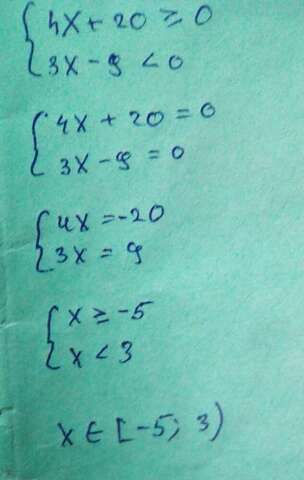 {4x + 20 ≥ 0
{3x - 9 < 0
{4x + 20 = 0
{3x - 9 = 0
{4x = -20
{3x = 9
{x ≥ -5
{x < 3
x ∈ [-5; 3)